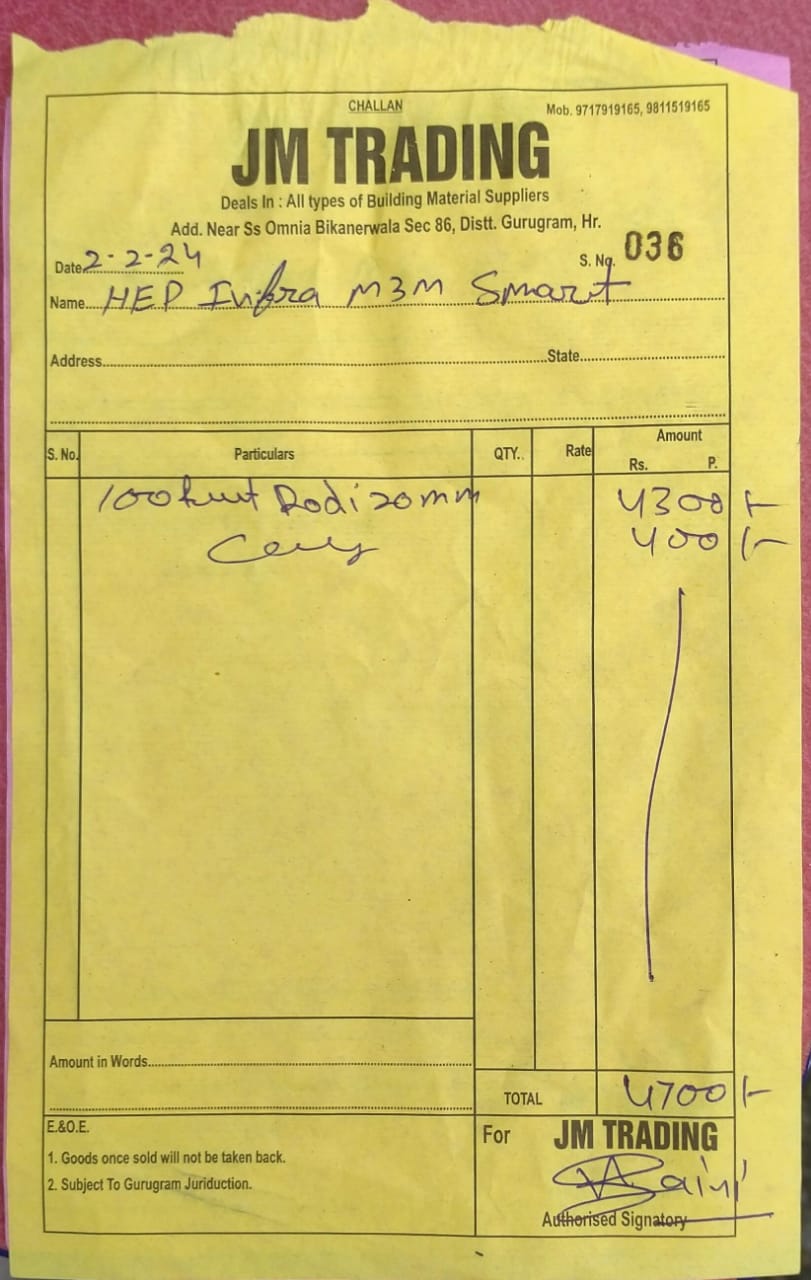 CHALLAN
Mob. 9717919165, 9811519165
JM TRADING
Deals In : All types of Building Material Suppliers
Add. Near Ss Omnia Bikanerwala Sec 86, Distt. Gurugram, Hr.
Date 2-2-24 S. No. 036
Name HEP Infra M3M Smart
Address State
S. No. Particulars QTY. Rate Amount
Rs. P.
100 Rodi 20mm 4300/-
400/-
Amount in Words
TOTAL 4700/-
E.&O.E.
For JM TRADING
1. Goods once sold will not be taken back.
2. Subject To Gurugram Juriduction.
Saini
Authorised Signatory